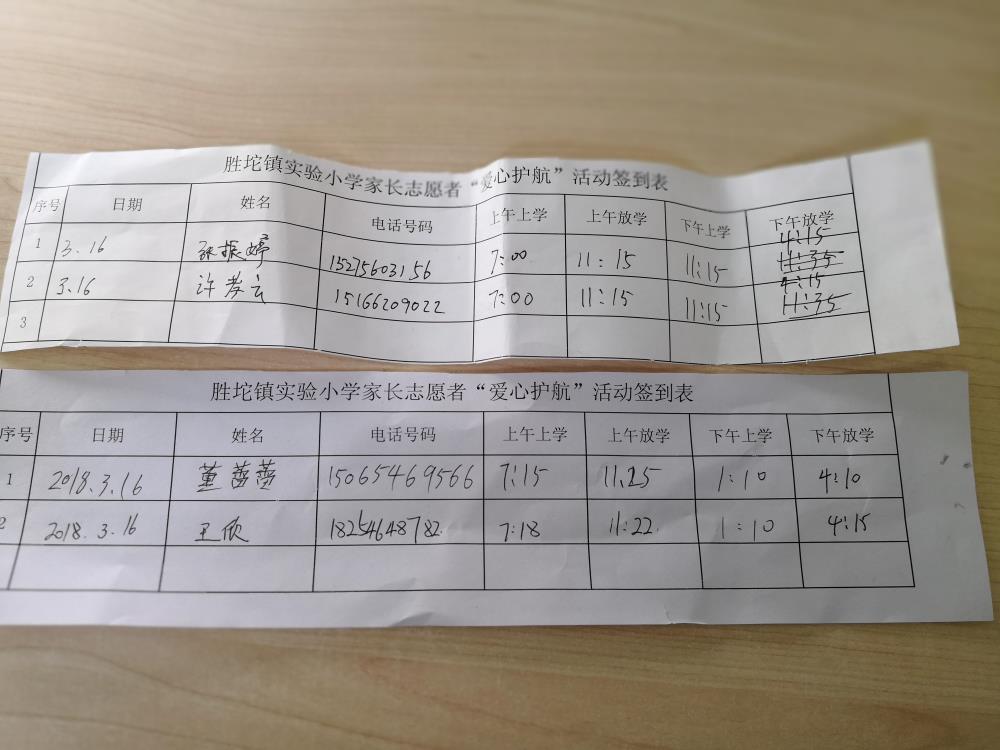 胜坨镇实验小学家长志愿者“爱心护航”活动签到表
序号 日期 姓名 电话号码 上午上学 上午放学 下午上学 下午放学
1 3.16 张振婷 15275603156 7:00 11:15 11:15 4:15 11:35
2 3.16 许孝云 15166209022 7:00 11:15 11:15 4:15 11:35
3
胜坨镇实验小学家长志愿者“爱心护航”活动签到表
序号 日期 姓名 电话号码 上午上学 上午放学 下午上学 下午放学
1 2018.3.16 董蕾蕾 15065469566 7:15 11:25 1:10 4:10
2 2018.3.16 王欣 18254648782 7:18 11:22 1:10 4:15